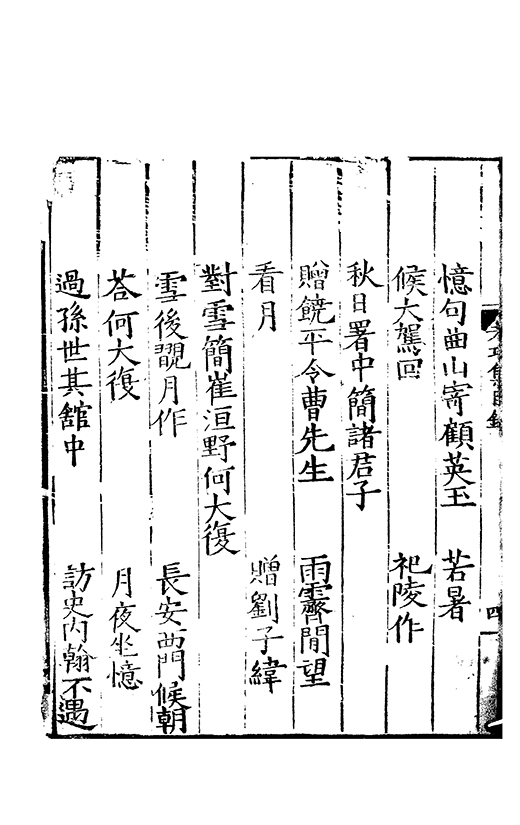 憶句曲山寄顧英玉　若暑
候大駕回　祀陵作
秋日署中簡諸君子
贈饒平令曹先生　雨霽閒望
看月　贈劉子緯
對雪簡崔洹野何大復
雪後翫月作　長安西門候朝
荅何大復　月夜坐憶
過孫世其舘中　訪史内翰不遇